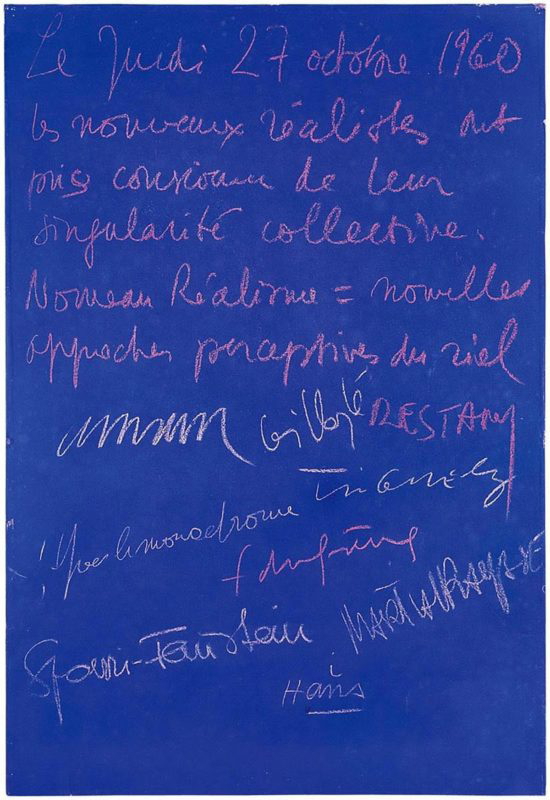 Le Jeudi 27 octobre 1960
les nouveaux réalistes ont
pris conscience de leur
singularité collective.
Nouveau Réalisme = nouvelles
approches perceptives du réel
arman RESTANY
Tinguely
Yves le monochrome
f dufrêne
MARTIALRAYSSE
Spoerri-Feinstein
Hains